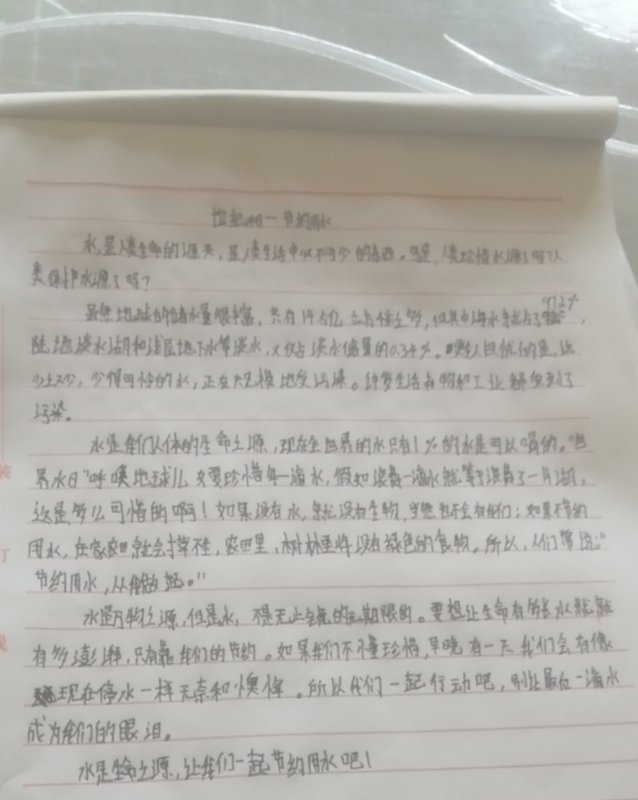 节约用水
水,是人类生命的源头,是人类生活中必不可少的东西。可是,人类珍惜水源了吗?人
类保护水源了吗?
虽然地球的储水量很丰富,共有14.5亿立方体之多,但其中海水却占了97.2%,
陆地淡水湖和浅层地下水等淡水,又仅占淡水储量的0.34%。更令人担忧的是,这
少之又少,少得可怜的水,正在大规模地受污染。许多生活和工业都受到了
污染。
水是我们人体的生命之源,现在全世界的水只有1%的水是可以喝的。"世
界水日"呼唤地球儿女要珍惜每一滴水,假如浪费一滴水就等于浪费了一月湖,
这是多么可惜的啊!如果没有水,就没有生物,当然也不会有我们;如果不节约
用水,庄家就会打不住,农田里,树林里将没有绿色的食物。所以,人们常说:"
节约用水,从我做起。"
水是万物之源,但是水,不是无止无境的无期限的。要想让生命有多长水就就
有多澎湃,只有靠我们的节约。如果我们不懂珍惜,早晚有一天我们会有像
现在停水一样无奈和懊悔。所以我们一起行动吧,别让最后一滴水
成为我们的眼泪。
水是生命之源,让我们一起节约用水吧!